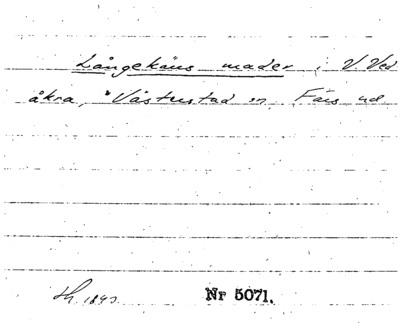 Långekäns mader, i V. Ved
åkra, Västrstad sn, Färs hd
Lh. 1843
Nr 5071.